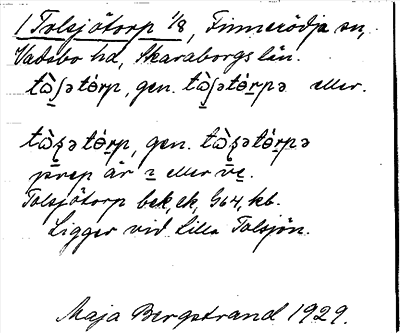 1 Tolsjötorp 1/8, Finnerödja sn,
Vadsbo hd, Skaraborgs län.
tὼʃə tórp, gen. tὼʃə tórpə eller.
tὼʂə tórp, gen. tὼʂə tórpə
prep är eller
Tolsjötorp bek, ek, G64, kb.
Ligger vid Lilla Tolsjön.
Maja Bergstrand 1929.